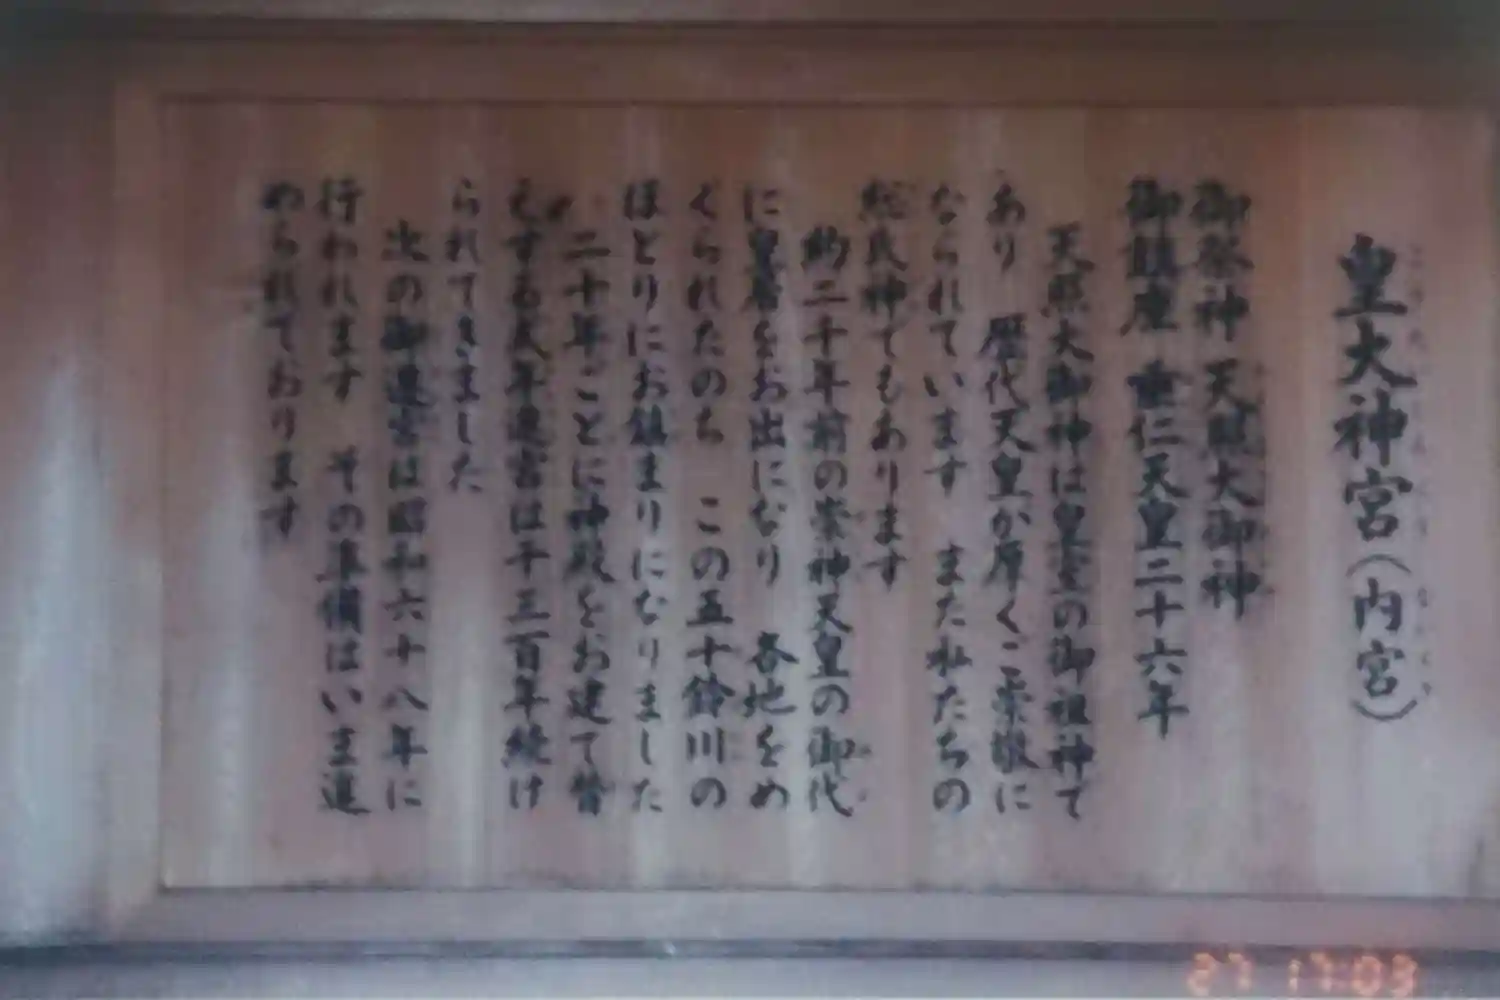 皇大神宮（内宮）
御祭神 天照大御神
御鎮座 垂仁天皇二十六年
天照大御神は皇室の御祖神で
あり 歴代天皇が厚くご崇敬に
なられています また私たちの
総氏神でもあります
約二千年前の崇神天皇の御代
に皇居をお出になり 各地をめ
ぐられたのち この五十鈴川の
ほとりにお鎮まりになりました
二十年ごとに神殿をお建て替
えする式年遷宮は千三百年続け
られてきました
次の御遷宮は昭和六十八年に
行われます その準備はいま進
められております
27 17:03